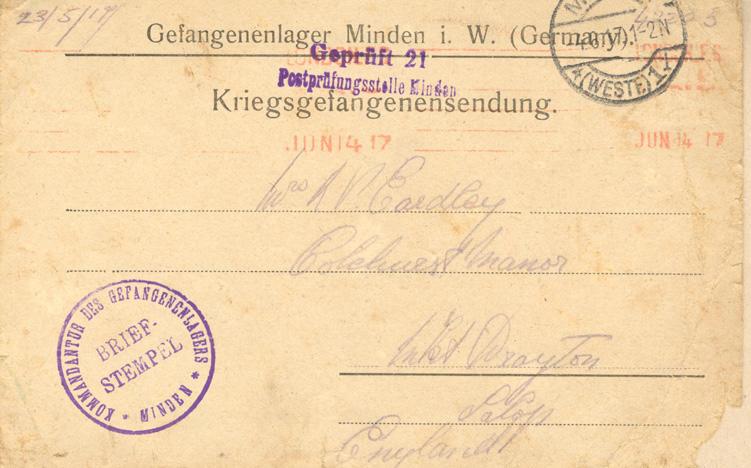 23/5/17
Gefangenenlager Minden i. W. (Germany).
Geprüft 21
Postprüfungsstelle Minden
1-2N
(WESTF) 1
Kriegsgefangenensendung.
JUN 14 17
JUN 14 17
Mrs A P. Eardley
Colehurst Manor
Mkt Drayton
Salop
England
KOMMANDANTUR DES GEFANGENENLAGERS
* MINDEN *
BRIEF-
STEMPEL